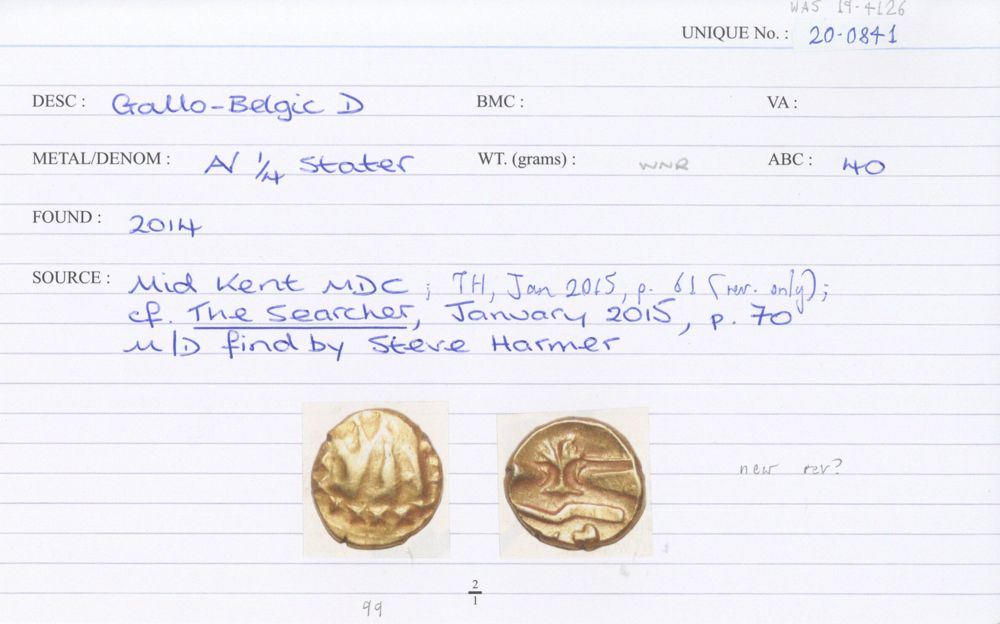 WAS 19-4126
UNIQUE No. : 20-0841
DESC : Gallo-Belgic D BMC : VA :
METAL/DENOM : AV 1/4 Stater WT. (grams) : WNR ABC : 40
FOUND : 2014
SOURCE : Mid Kent MDC ; TH, Jan 2015, p. 61 (rev. only);
cf. The Searcher, January 2015, p. 70
M/D find by Steve Harmer
new rev?
2/1
99